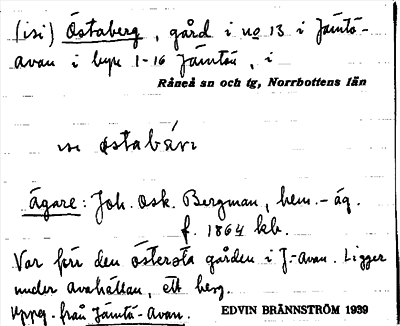 (isi) Östaberg, gård i no 13 i Jämtö-
avan i byn 1-16 Jämtön, i
Råneå sn och tg, Norrbottens län
 östabärι
Ägare: Joh. Osk. Bergman, hem.-äg.
f. 1864 kb.
Var förr den östersta gården i J.-avan. Ligger
under avahällan, ett berg.
Uppg. från Jämtö-Avan. EDVIN BRÄNNSTRÖM 1939